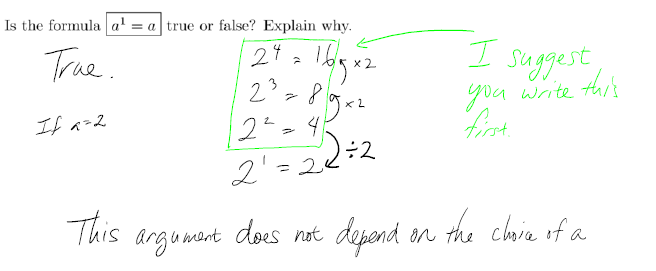 Is the formula a¹ = a true or false? Explain why.
True.
If a=2
2⁴ = 16
×2
2³ = 8
×2
2² = 4
÷2
2¹ = 2
I suggest
you write this
first.
This argument does not depend on the choice of a